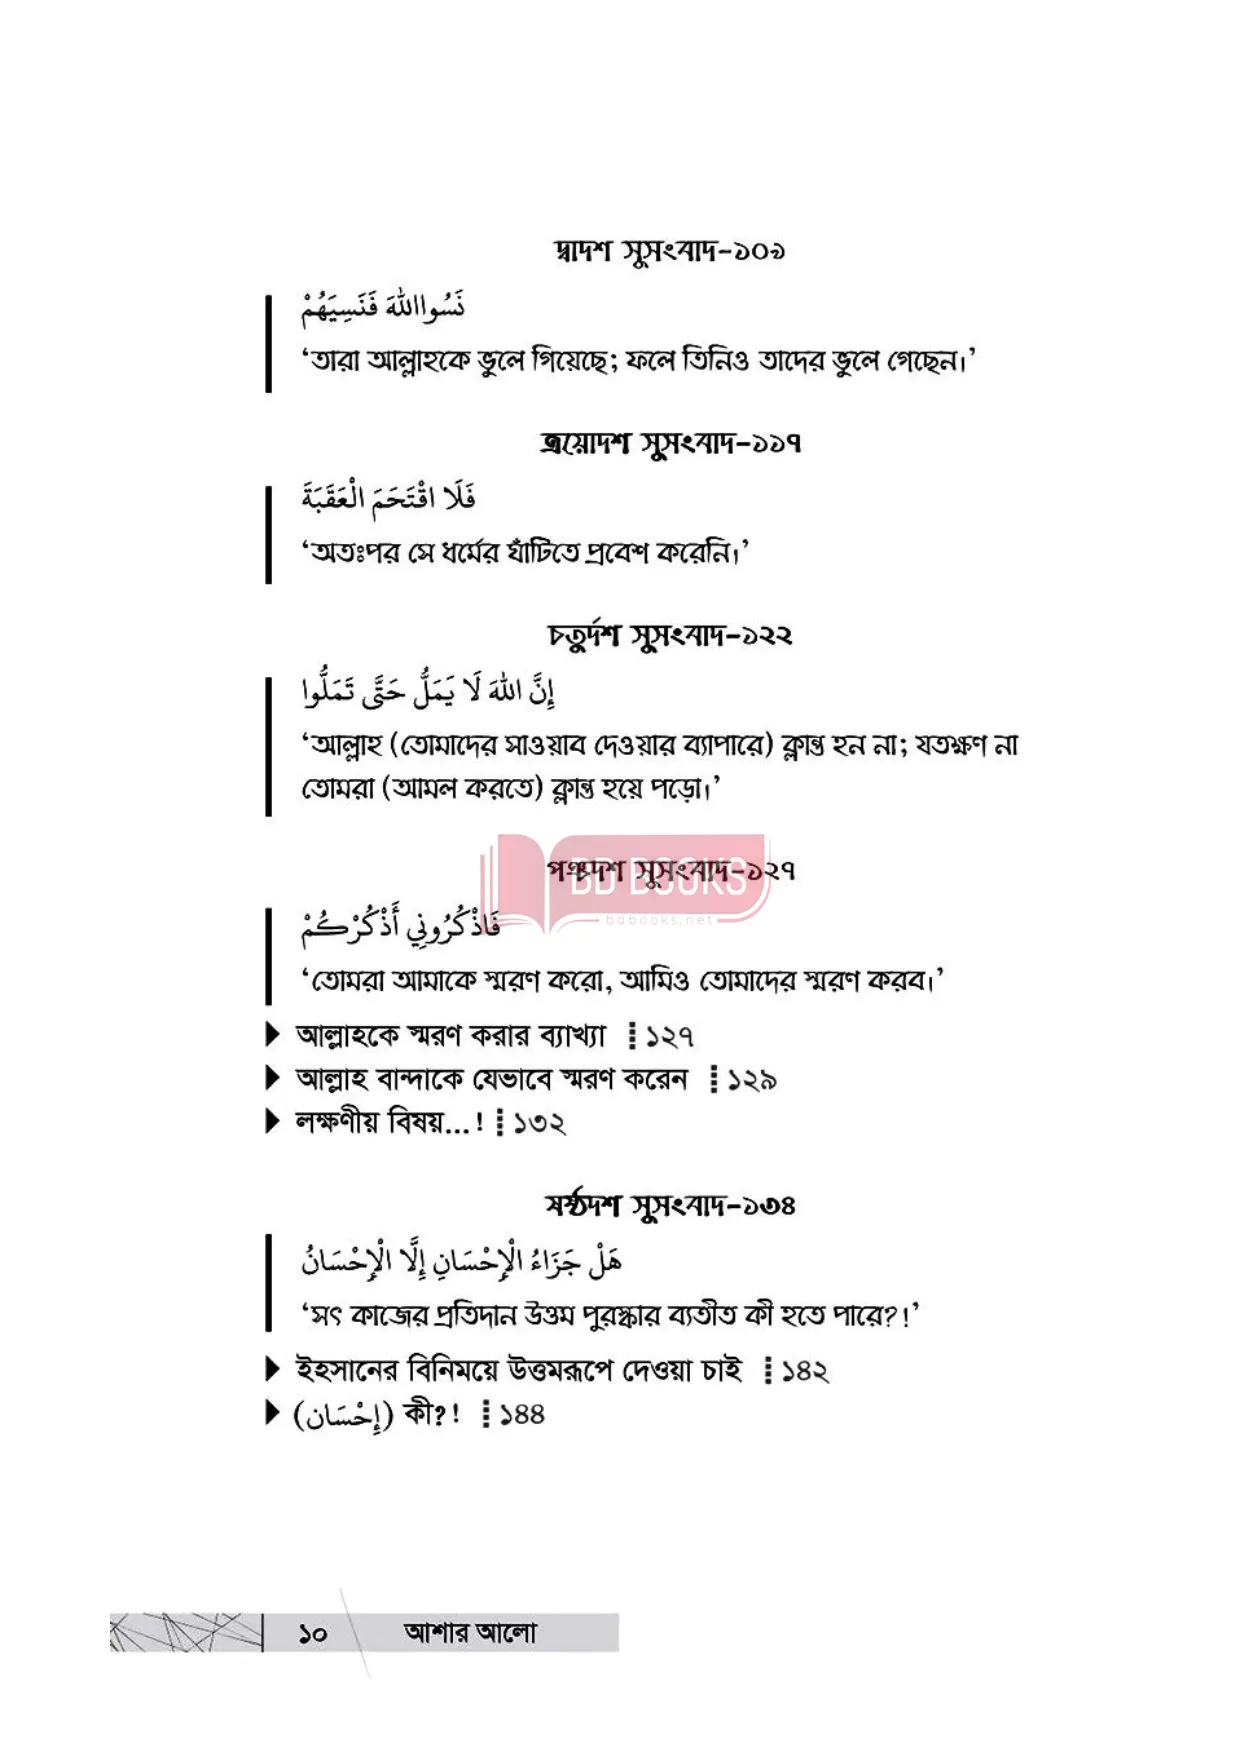 দ্বাদশ সুসংবাদ-১০৯
نَسُوااللهَ فَنَسِيَهُمْ
‘তারা আল্লাহকে ভুলে গিয়েছে; ফলে তিনিও তাদের ভুলে গেছেন।’
ত্রয়োদশ সুসংবাদ-১১৭
فَلَا اقْتَحَمَ الْعَقَبَةَ
‘অতঃপর সে ধর্মের ঘাঁটিতে প্রবেশ করেনি।’
চতুর্দশ সুসংবাদ-১২২
إِنَّ اللهَ لَا يَمَلُّ حَتَّى تَمَلُّوا
‘আল্লাহ (তোমাদের সাওয়াব দেওয়ার ব্যাপারে) ক্লান্ত হন না; যতক্ষণ না
তোমরা (আমল করতে) ক্লান্ত হয়ে পড়ো।’
পঞ্চদশ সুসংবাদ-১২৭
BD BOOKS
bdbooks.net
فَاذْكُرُونِي أَذْكُرْكُمْ
‘তোমরা আমাকে স্মরণ করো, আমিও তোমাদের স্মরণ করব।’
আল্লাহকে স্মরণ করার ব্যাখ্যা ⁞ ১২৭
আল্লাহ বান্দাকে যেভাবে স্মরণ করেন ⁞ ১২৯
লক্ষণীয় বিষয়...! ⁞ ১৩২
ষষ্ঠদশ সুসংবাদ-১৩৪
هَلْ جَزَاءُ الْإِحْسَانِ إِلَّا الْإِحْسَانُ
‘সৎ কাজের প্রতিদান উত্তম পুরস্কার ব্যতীত কী হতে পারে?!’
ইহসানের বিনিময়ে উত্তমরূপে দেওয়া চাই ⁞ ১৪২
(إِحْسَان) কী?! ⁞ ১৪৪
১০ আশার আলো